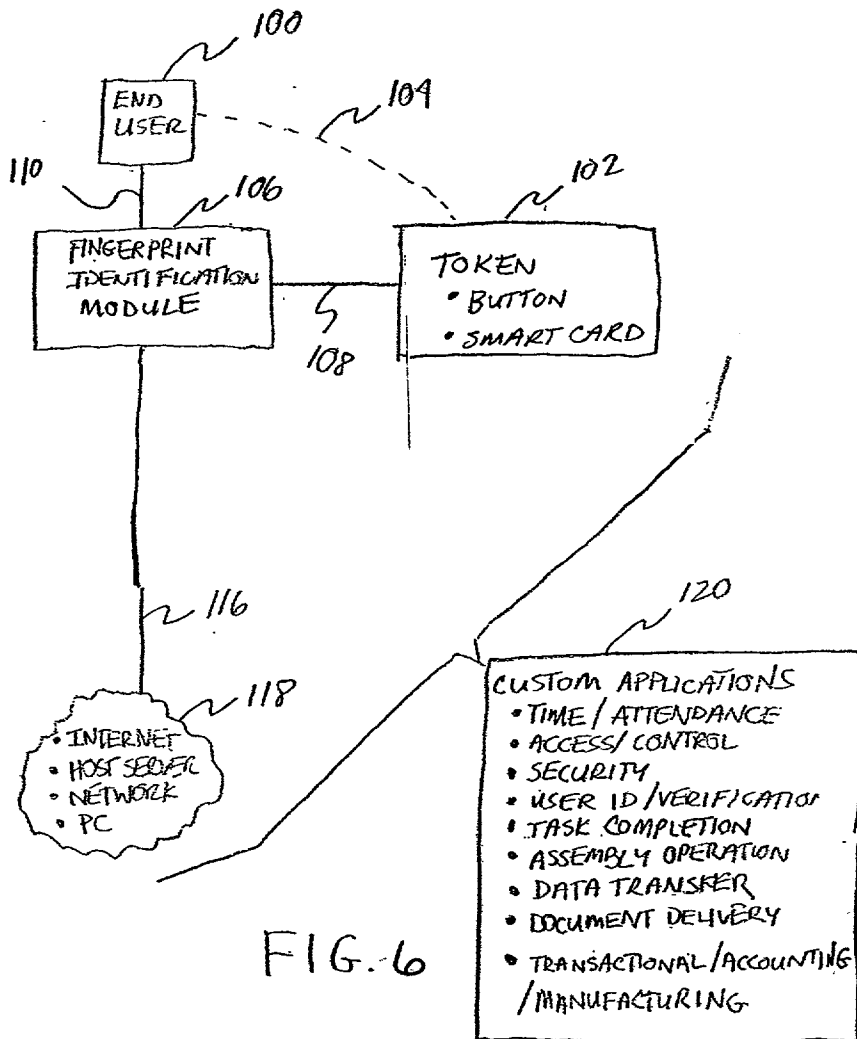 100
END
USER
104
110
106
102
FINGERPRINT
IDENTIFICATION
MODULE
TOKEN
• BUTTON
• SMART CARD
108
116
118
• INTERNET
• HOST SERVER
• NETWORK
• PC
120
CUSTOM APPLICATIONS
• TIME / ATTENDANCE
• ACCESS / CONTROL
• SECURITY
• USER ID / VERIFICATION
• TASK COMPLETION
• ASSEMBLY OPERATION
• DATA TRANSFER
• DOCUMENT DELIVERY
• TRANSACTIONAL / ACCOUNTING
/ MANUFACTURING
FIG. 6